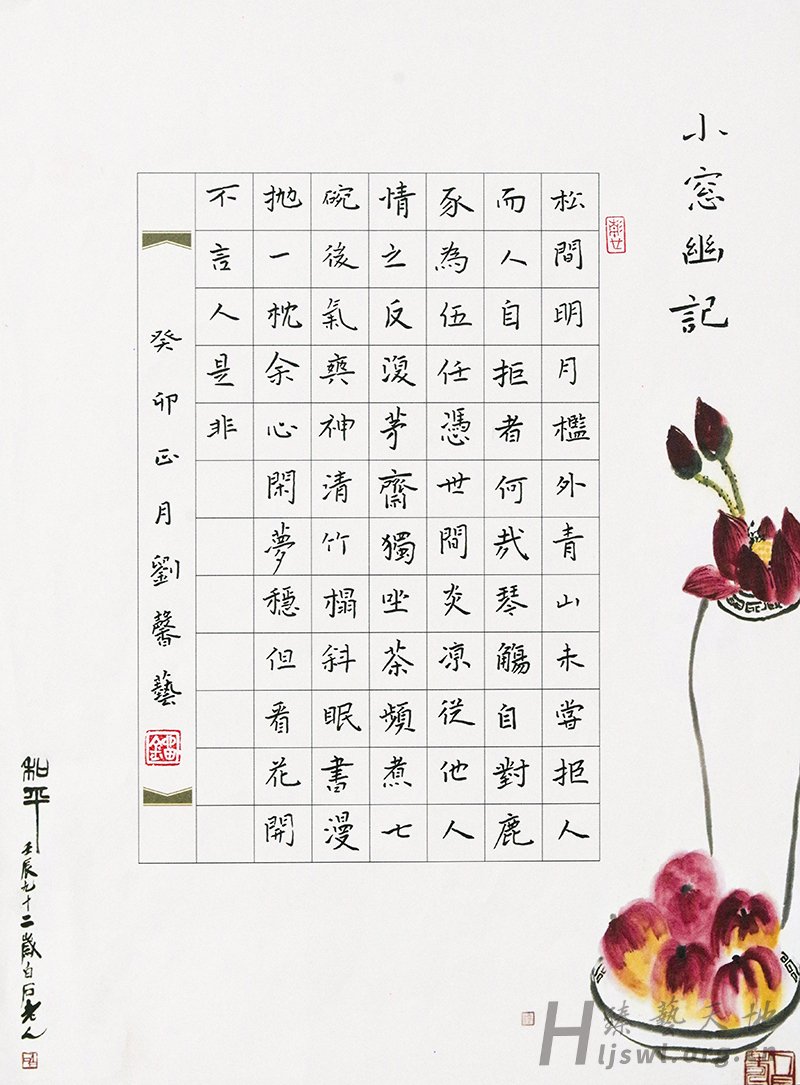 小窓幽記
松間明月檻外青山未嘗拒人
而人自拒者何哉琴觴自對鹿
豕為伍任憑世間炎凉從他人
情之反復茅齋獨坐茶頻煮七
碗後氣爽神清竹榻斜眠書漫
抛一枕余心閑夢穩但看花開
不言人是非
癸卯正月劉馨藝
和平
壬辰九十二歲白石老人
臻藝天地
Hljswl.org.cn